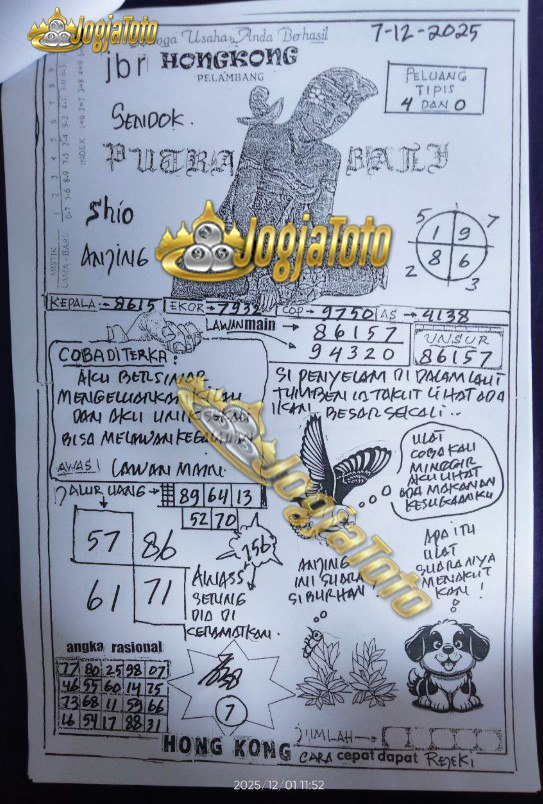 JogjaToto
Semoga Usaha Anda Berhasil
7-12-2025
jbr HONGKONG
PELAMBANG
PELUANG
TIPIS
4 DAN 0
SENDOK.
PUTRA BALI
Shio
ANJING
JogjaToto
5 7
1 9
8 6
2 3
KEPALA→8615 EKOR→7932 COP→9750 AS→4138
LAWAN main → 86157
94320
UNSUR
86157
COBA DI TERKA:
AKU BERSINAR
MENGELUARKAN
DAN AKU UNIK
BISA MELAWAN
AWAS! LAWAN MAIN.
SI PENYELAM DI DALAM LAUT
TUMBEN IA TAKUT LIHAT ADA
IKAN BESAR SEKALI..
JogjaToto
ULAT
COBA KAU
MINGGIR
AKU LIHAT
ADA MAKANAN
KESUKAANKU
JALUR UANG → 89 64 13
52 70
57 86
61 71
756
AWASS
SETUNG
DIA DI
KERAMATKAN.
ANJING
INI SUARA
SI BURHAN
APA ITU
ULAT
SUARANYA
MENAKUT
KAN!
angka rasional
77 80 25 98 07
46 55 60 14 75
73 68 11 59 66
16 54 17 88 31
7
JUMLAH→
HONG KONG CARA cepat dapat REJEKI
2025/12/01 11:52